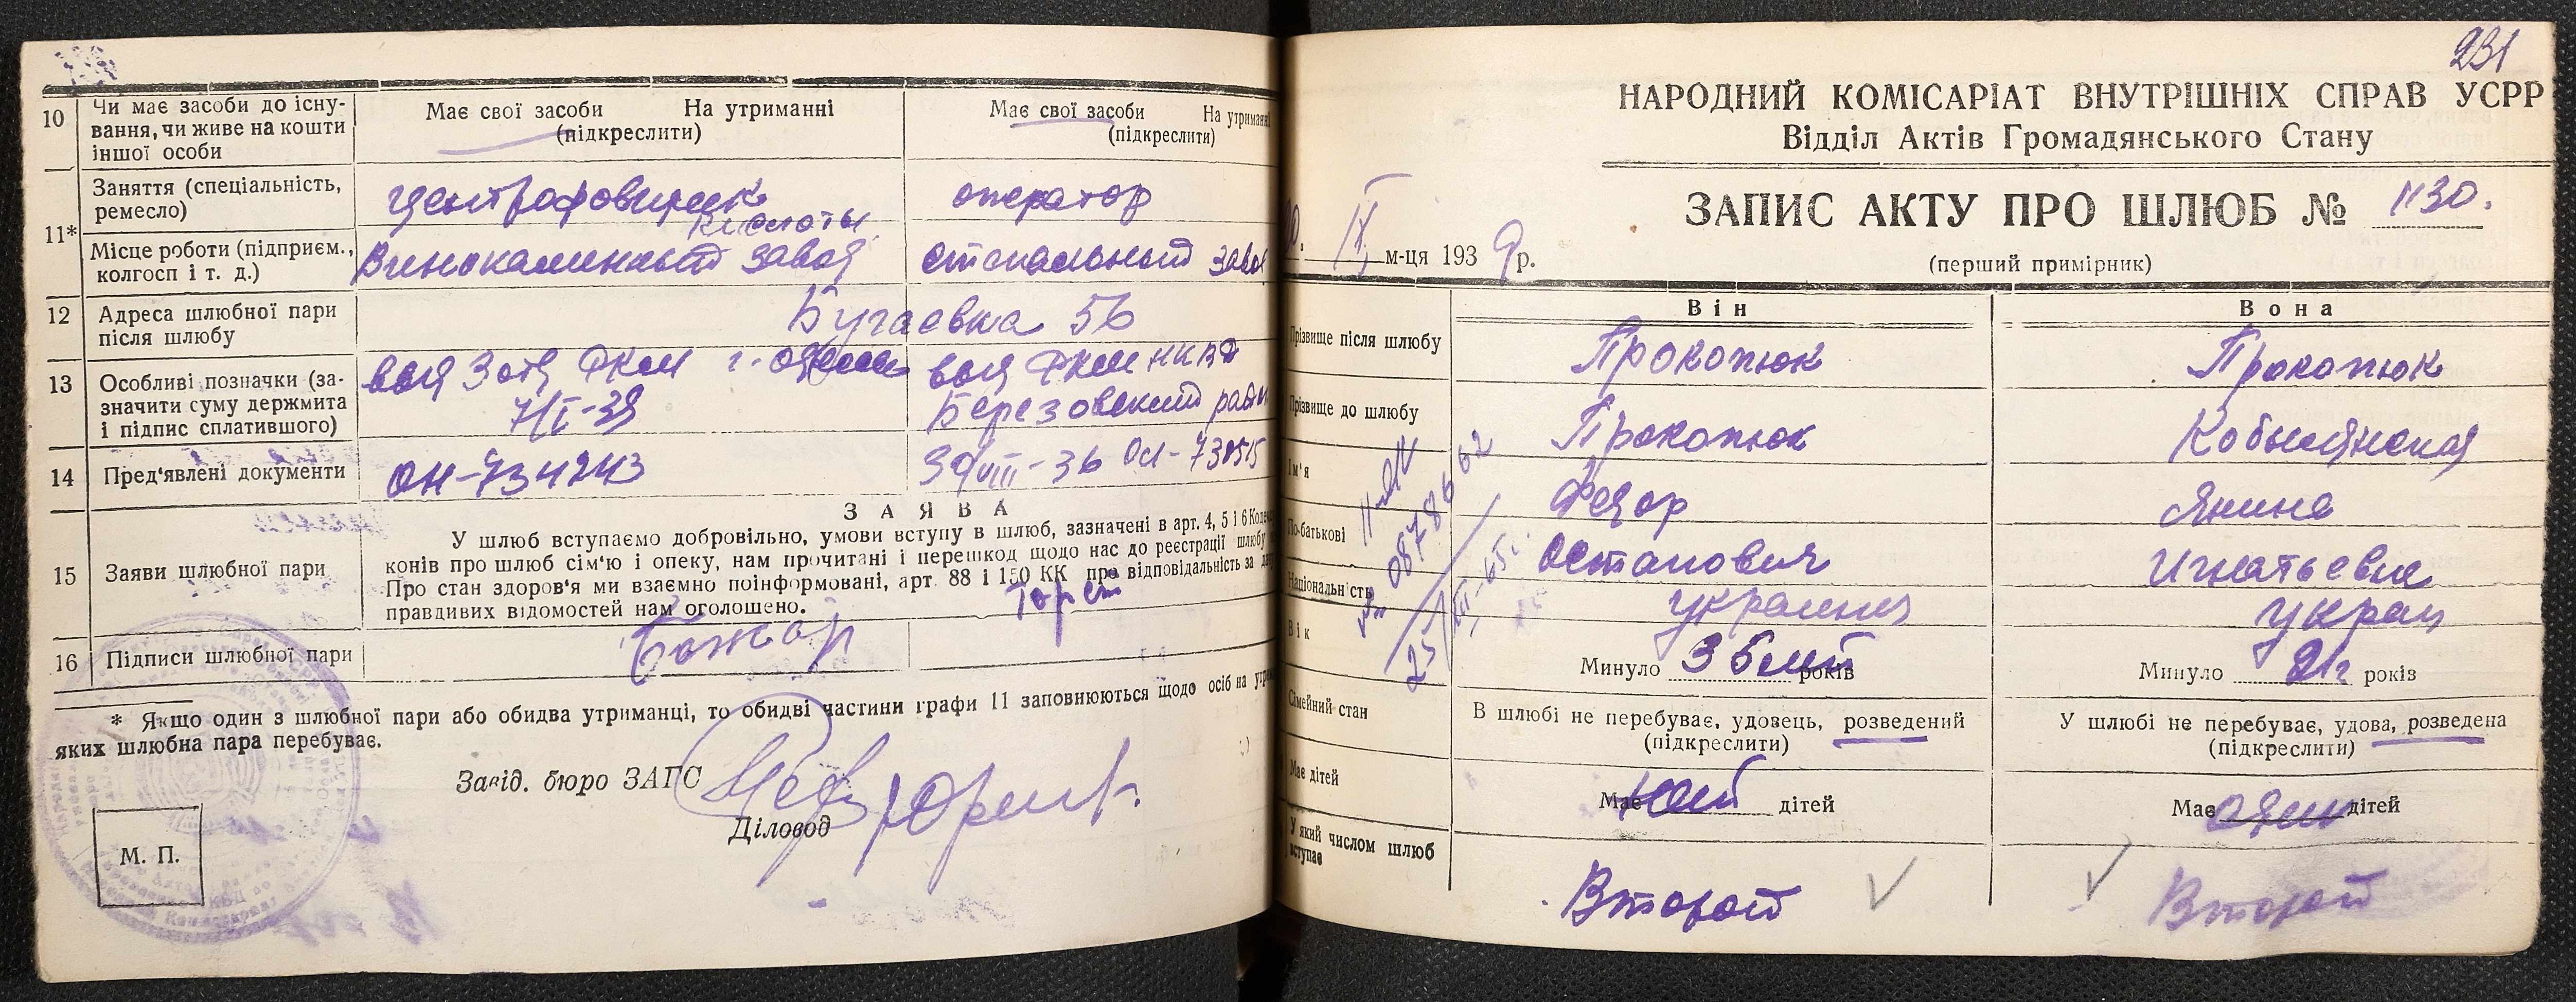 10 Чи має засоби до існу-
вання, чи живе на кошти
іншої особи
Має свої засоби На утриманні
(підкреслити)
Має свої засоби На утриманні
(підкреслити)
11*
Заняття (спеціальність,
ремесло)
оператор
кислоты
Місце роботи (підприєм.,
колгосп і т. д.)
Виннокаменный завод
завод
12 Адреса шлюбної пари
після шлюбу
Бугаевка 56
13 Особливі позначки (за-
значити суму держмита
і підпис сплатившого)
7/I-39
Березовский
14 Пред'явлені документи
ОН-734243
15 Заяви шлюбної пари
ЗАЯВА
У шлюб вступаємо добровільно, умови вступу в шлюб, зазначені в арт. 4, 5 і 6
конів про шлюб сім'ю і опеку, нам прочитані і перешкод щодо нас до реєстрації шлюбу
Про стан здоров'я ми взаємно поінформовані, арт. 88 і 150 КК про відповідальність за
правдивих відомостей нам оголошено.
16 Підписи шлюбної пари
* Якщо один з шлюбної пари або обидва утриманці, то обидві частини графи 11 заповнюються щодо осіб на
яких шлюбна пара перебуває.
Завід. бюро ЗАГС
Діловод
М. П.
231
НАРОДНИЙ КОМІСАРІАТ ВНУТРІШНІХ СПРАВ УСРР
Відділ Актів Громадянського Стану
ЗАПИС АКТУ ПРО ШЛЮБ № 1130.
(перший примірник)
IX м-ця 1939 р.
Він Вона
Прізвище після шлюбу
Прокопюк Прокопюк
Прізвище до шлюбу
Прокопюк Кобылянская
Ім'я
Федор Янина
По-батькові
Остапович Игнатьевна
Національність
украинец украин
Вік
Минуло 36 лет років
Минуло 21 г років
Сімейний стан
В шлюбі не перебуває, удовець, розведений
(підкреслити)
У шлюбі не перебуває, удова, розведена
(підкреслити)
Має дітей
Має дітей
Має один дітей
У який числом шлюб
вступає
Второй Второй